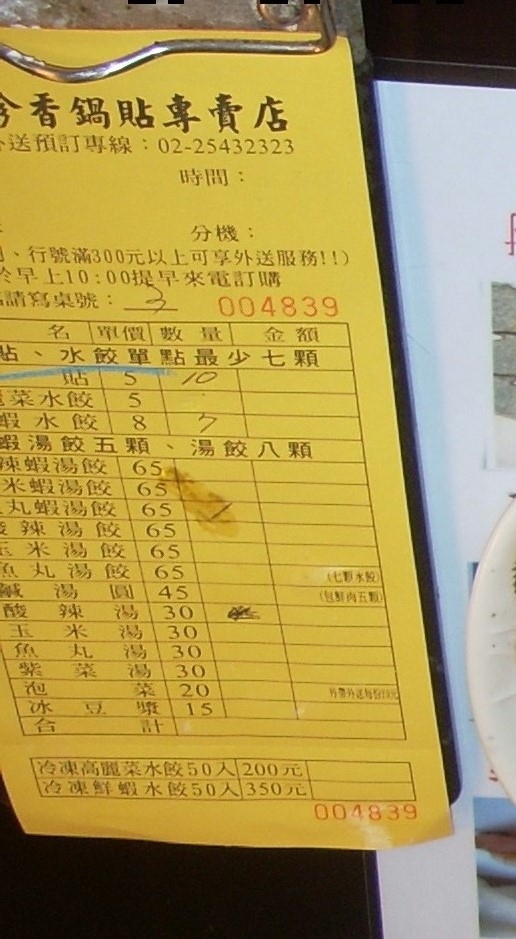 香鍋貼專賣店
外送預訂專線：02-25432323
時間：
分機：
、行號滿300元以上可享外送服務!!)
於早上10:00提早來電訂購
請寫桌號： 3 004839
名 單價 數量 金額
貼、水餃單點最少七顆
貼 5 10
麗菜水餃 5
蝦水餃 8 7
蝦湯餃五顆、湯餃八顆
辣蝦湯餃 65
米蝦湯餃 65
丸蝦湯餃 65
酸辣湯餃 65
玉米湯餃 65
魚丸湯餃 65 (七顆水餃)
鹹湯圓 45 (包鮮肉五顆)
酸辣湯 30
玉米湯 30
魚丸湯 30
紫菜湯 30
泡菜 20
冰豆漿 15
合計
冷凍高麗菜水餃50入 200元
冷凍鮮蝦水餃50入 350元
004839